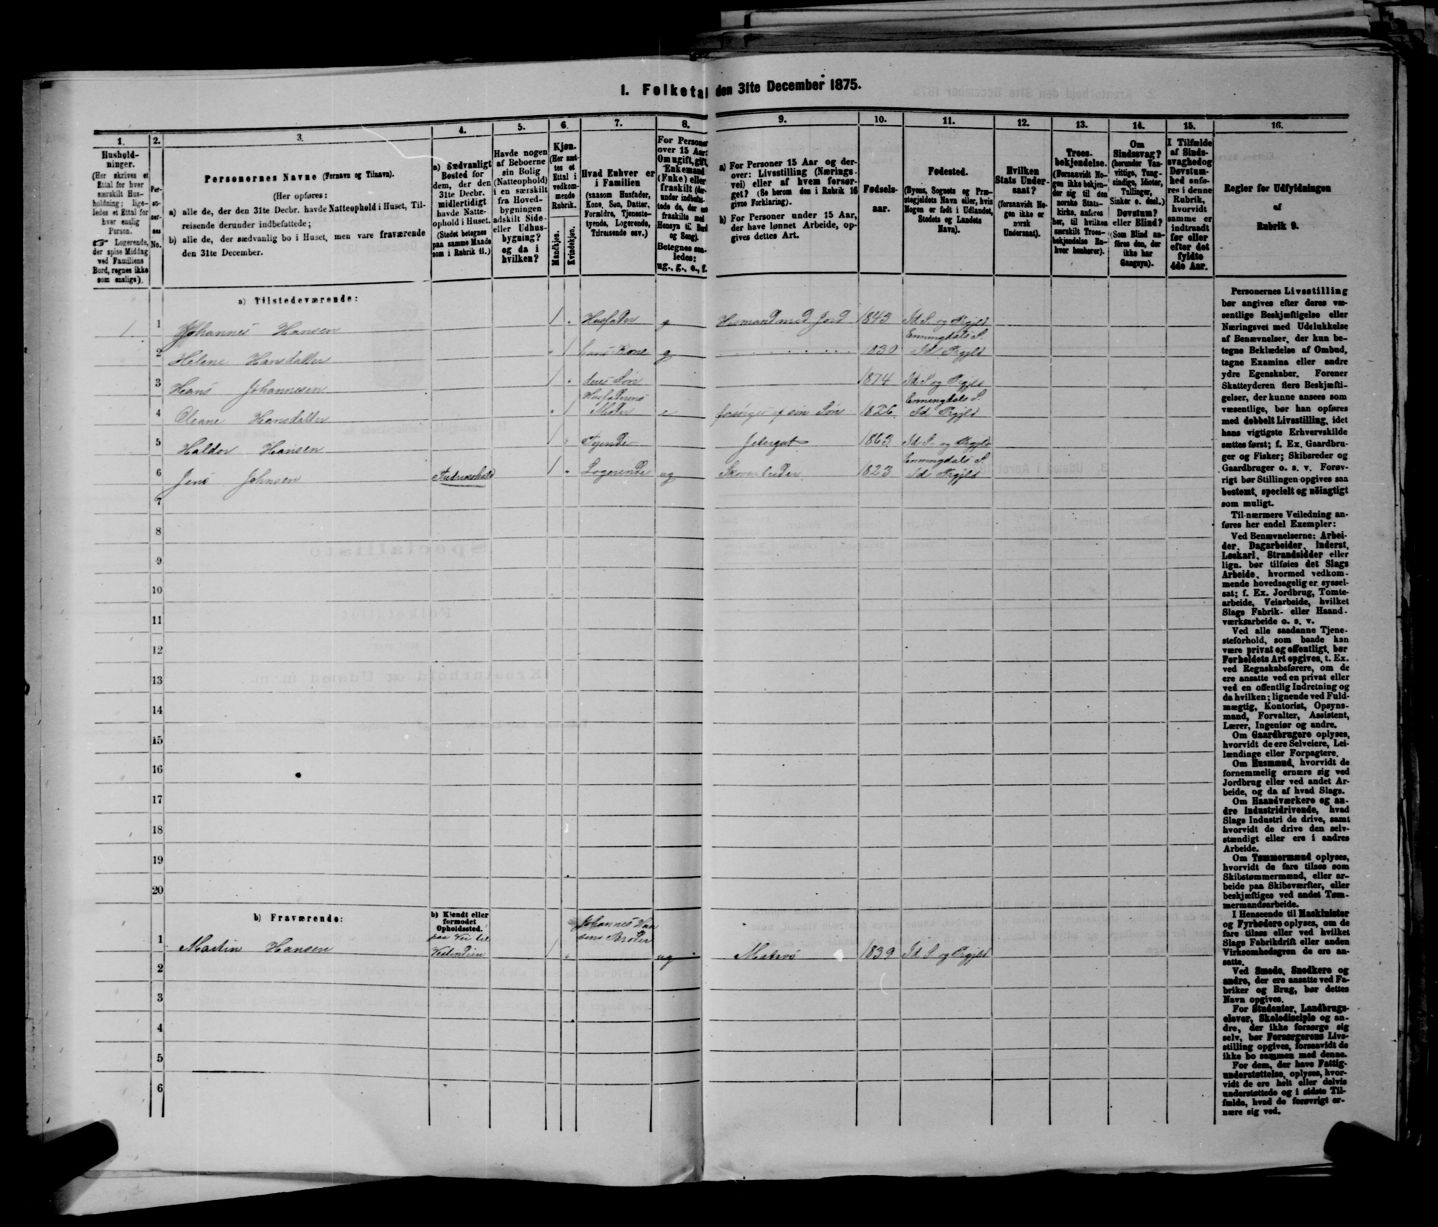 1. Folketal den 31te December 1875.
1. 2. 3. 4. 5. 6. 7. 8. 9. 10. 11. 12. 13. 14. 15. 16.
Hushold-
ninger.
(Her skrives et
Ettal for hver
særskilt Hus-
holdning; lige-
ledes et Ettal for
hver enslig
Person.
☞ Logerende,
der spise Middag
ved Familiens
Bord, regnes ikke
som enslige).
Personernes Navne (Fornavn og Tilnavn).
(Her opføres:
a) alle de, der den 31te Decbr. havde Natteophold i Huset, Til-
reisende derunder indbefattede;
b) alle de, der sædvanlig bo i Huset, men vare fraværende
den 31te December.
a) Sædvanligt
Bosted for
dem, der den
31te Decbr.
midlertidigt
havde Natte-
ophold i Huset.
(Stedet betegnes
paa samme Maade
som i Rubrik 11.)
Havde nogen
af Beboerne
sin Bolig
(Natteophold)
i en særskilt
fra Hoved-
bygningen
adskilt Side-
eller Udhus-
bygning?
og da i
hvilken?
Kjøn.
(Her sæt-
tes et
Ettal i
vedkom-
mende
Rubrik.
Mandkjøn.
Kvindekjøn.
Hvad Enhver er
i Familien
(saasom Husfader,
Kone, Søn, Datter,
Forældre, Tjeneste-
tyende, Logerende,
Tilreisende osv.)
For Personer
over 15 Aar:
Om ugift, gift,
Enkemand
(Enke) eller
fraskilt
Betegnes saa-
ledes:
ug., g., e., f.
a) For Personer 15 Aar og der-
over: Livsstilling (Nærings-
vei) eller af hvem forsør-
get? (Se herom den i Rubrik 16
givne Forklaring).
b) For Personer under 15 Aar,
der have lønnet Arbeide, op-
gives dettes Art.
Fødsels-
aar.
Fødested.
(Byens, Sognets og Præ-
stegjeldets Navn eller, hvis
Nogen er født i Udlandet,
Stedets og Landets
Navn).
Hvilken
Stats Under-
saat?
(forsaavidt No-
gen ikke er
norsk
Undersaat).
Troes-
bekjendelse.
(Forsaavidt No-
gen ikke bekjen-
der sig til den
norske Stats-
kirke, anføres
her, til hvilken
særskilt Troes-
bekjendelse En-
hver henhører).
Om
Sindssvag?
(herunder Van-
vittige, Tung-
sindige, Idioter,
Tullinger,
Sinker o. desl.)
Døvstum?
eller Blind?
(Som Blind an-
føres den, der
ikke har
Gangsyn).
I Tilfælde
af Sinds-
svaghed og
Døvstum-
hed anfø-
res i denne
Rubrik,
hvorvidt
samme er
indtraadt
før eller
efter det
fyldte
4de Aar.
Regler for Udfyldningen
af
Rubrik 9.
a) Tilstedeværende:
1 1 Johannes Hansen 1 Husfader g Husmand med Jord 1843 Id S. og Prgjld
2 Helene Hansdatter 1 hans Kone g 1830 Enningdals S. Id Prgjld
3 Hans Johannesen 1 deres Søn 1874 Id S og Prgjld
4 Oleane Hansdatter 1 Husfaderens Moder e forsørges af sin Søn 1826 Enningdals S Id Prgjld
5 Haldor Hansen 1 Tyende Jetergut 1863 Id S. og Prgjld
6 Jens Johnsen Fredrikshald 1 Logerende ug Skovarbeider 1823 Enningdals S Id Prgjld
7
8
9
10
11
12
13
14
15
16
17
18
19
20
b) Fraværende:
b) Kjendt eller
formodet
Opholdssted.
1 Martin Hansen paa Vei til Vestindien 1 Johannes Hansens Broder ug Matros 1839 Id S og Prgjld
2
3
4
5
6
Personernes Livsstilling
bør angives efter deres væ-
sentlige Beskjæftigelse eller
Næringsvei med Udelukkelse
af Benævnelser, der kun be-
tegne Beklædelse af Ombud,
tagne Examina eller andre
ydre Egenskaber. Forener
Skatteyderen flere Beskjæfti-
gelser, der kunne ansees som
væsentlige, bør han opføres
med dobbelt Livsstilling, idet
hans vigtigste Erhvervskilde
sættes først; f. Ex. Gaardbru-
ger og Fisker; Skibsreder og
Gaardbruger o. s. v. Forøv-
rigt bør Stillingen opgives saa
bestemt, specielt og nøiagtigt
som muligt.
Til nærmere Veiledning an-
føres her endel Exempler:
Ved Benævnelserne: Arbei-
der, Dagarbeider, Inderst,
Løskarl, Strandsidder eller
lign. bør tilføies det Slags
Arbeide, hvormed vedkom-
mende hovedsagelig er syssel-
sat; f. Ex. Jordbrug, Tomte-
arbeide, Veiarbeide, hvilket
Slags Fabrik- eller Haand-
værksarbeide o. s. v.
Ved alle saadanne Tjene-
steforhold, som baade kan
være privat og offentligt, bør
Forholdets Art opgives, t. Ex.
ved Regnskabsførere, om de
ere ansatte ved en privat eller
ved en offentlig Indretning og
da hvilken; lignende ved Fuld-
mægtig, Kontorist, Opsyns-
mand, Forvalter, Assistent,
Lærer, Ingeniør og andre.
Om Gaardbrugere oplyses,
hvorvidt de ere Selveiere, Lei-
lændinge eller Forpagtere.
Om Husmænd, hvorvidt de
fornemmelig ernære sig ved
Jordbrug eller ved andet Ar-
beide, og da af hvad Slags.
Om Haandværkere og an-
dre Industridrivende, hvad
Slags Industri de drive, samt
hvorvidt de drive den selv-
stændigt eller ere i andres
Arbeide.
Om Tømmermænd oplyses,
hvorvidt de fare tilsøs som
Skibstømmermænd, eller ar-
beide paa Skibsværfter, eller
beskjæftiges ved andet Tøm-
mermandsarbeide.
I Henseende til Maskinister
og Fyrbødere oplyses, om de
fare tilsøs eller ved hvilket
Slags Fabrikdrift eller anden
Virksomhedsgren de ere an-
satte.
Ved Smede, Snedkere og
andre, der ere ansatte ved Fa-
briker og Brug, bør dettes
Navn opgives.
For Studenter, Landbrugs-
elever, Skoledisciple og an-
dre, der ikke forsørge sig
selv, bør Forsørgerens Livs-
stilling opgives, forsaavidt de
ikke bo sammen med denne.
For dem, der have Fattig-
understøttelse, oplyses, hvor-
vidt de ere helt eller delvis
understøttede og i sidste Til-
fælde, hvad de forøvrigt er-
nære sig ved.